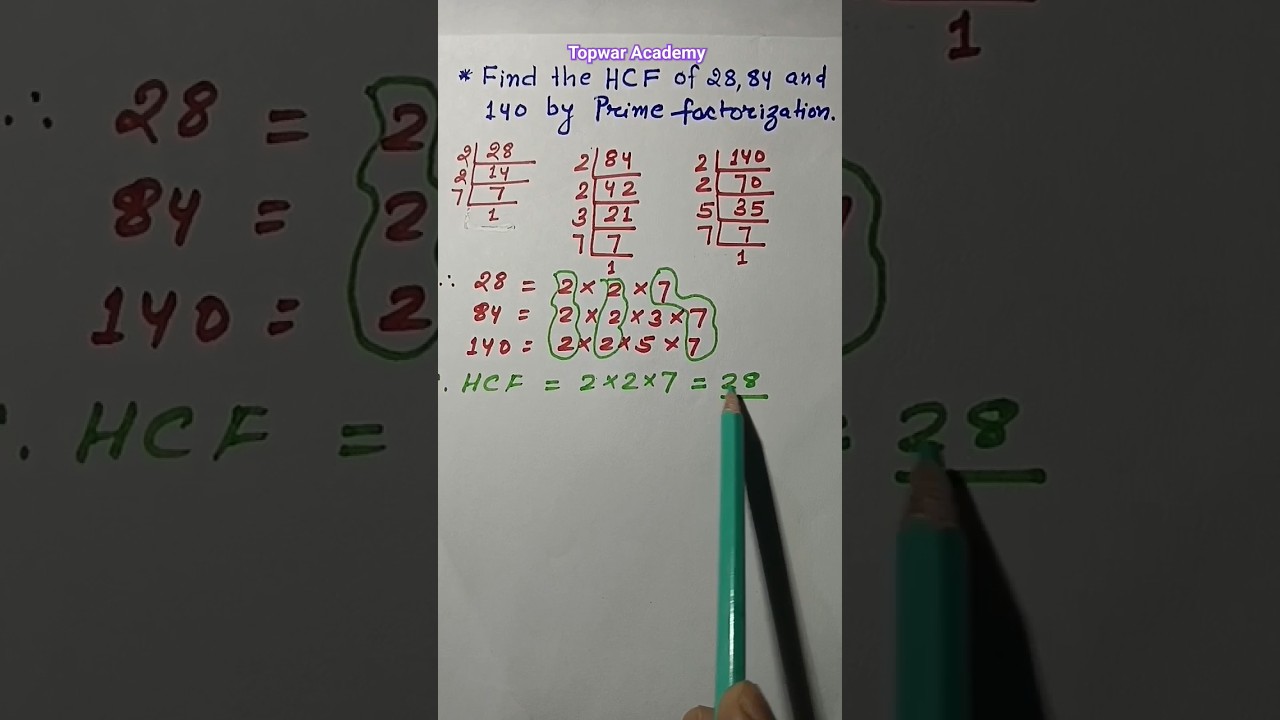 Topwar Academy
* Find the HCF of 28, 84 and
140 by Prime factorization.
2 | 28
2 | 14
7 | 7
1
2 | 84
2 | 42
3 | 21
7 | 7
1
2 | 140
2 | 70
5 | 35
7 | 7
1
∴ 28 = 2 × 2 × 7
84 = 2 × 2 × 3 × 7
140 = 2 × 2 × 5 × 7
∴ HCF = 2 × 2 × 7 = 28
1
∴ 28 = 2
84 = 2
140 = 2
∴ HCF =
= 28